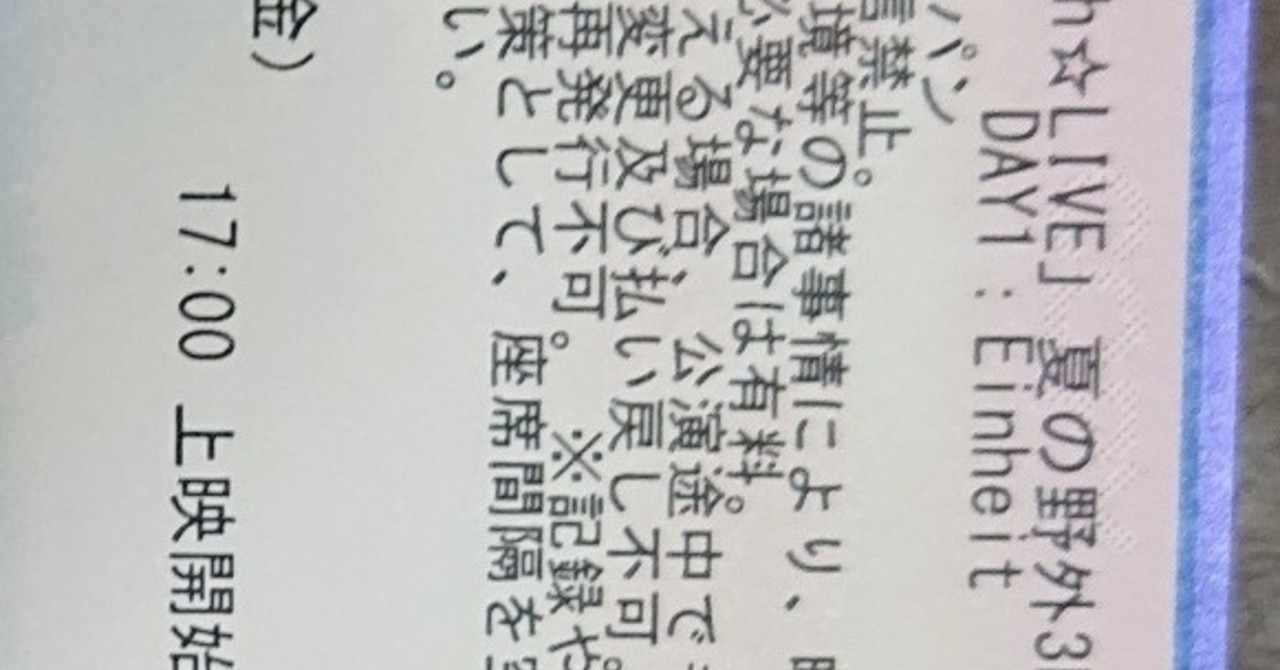 h☆LIVE」 夏の野外3
DAY1: Einheit
パン
禁止。
境等の諸事情により、
必要な場合は有料。
える場合、公演途中で
変更及び払い戻し不可。
再発行不可。 ※記録や
策として、座席間隔を
い。
金)
17:00 上映開始